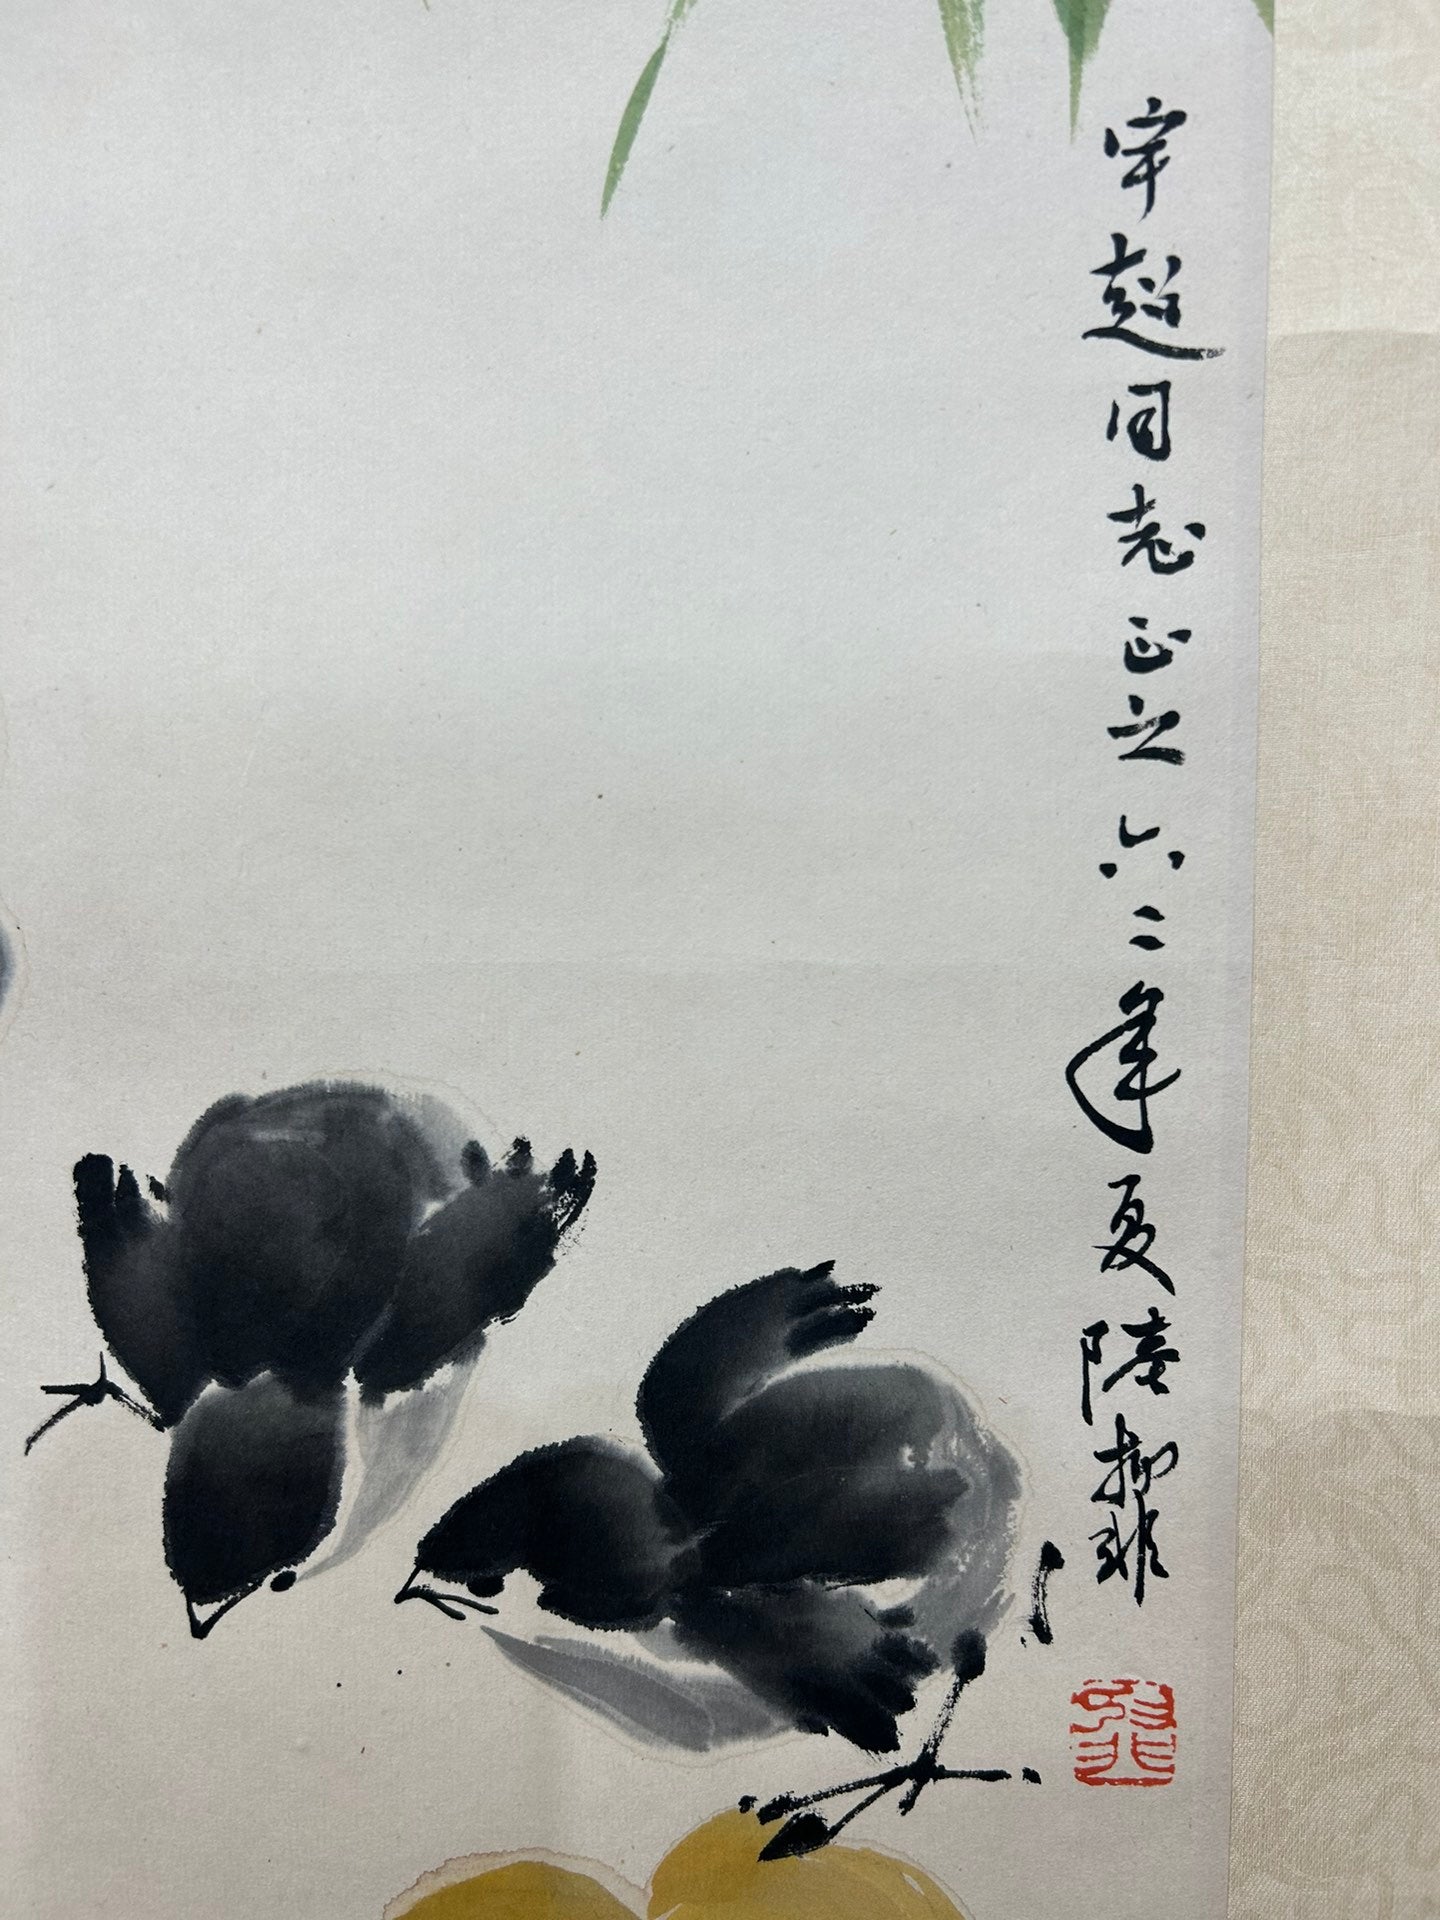 宇超同志正之六二年夏陆抑非